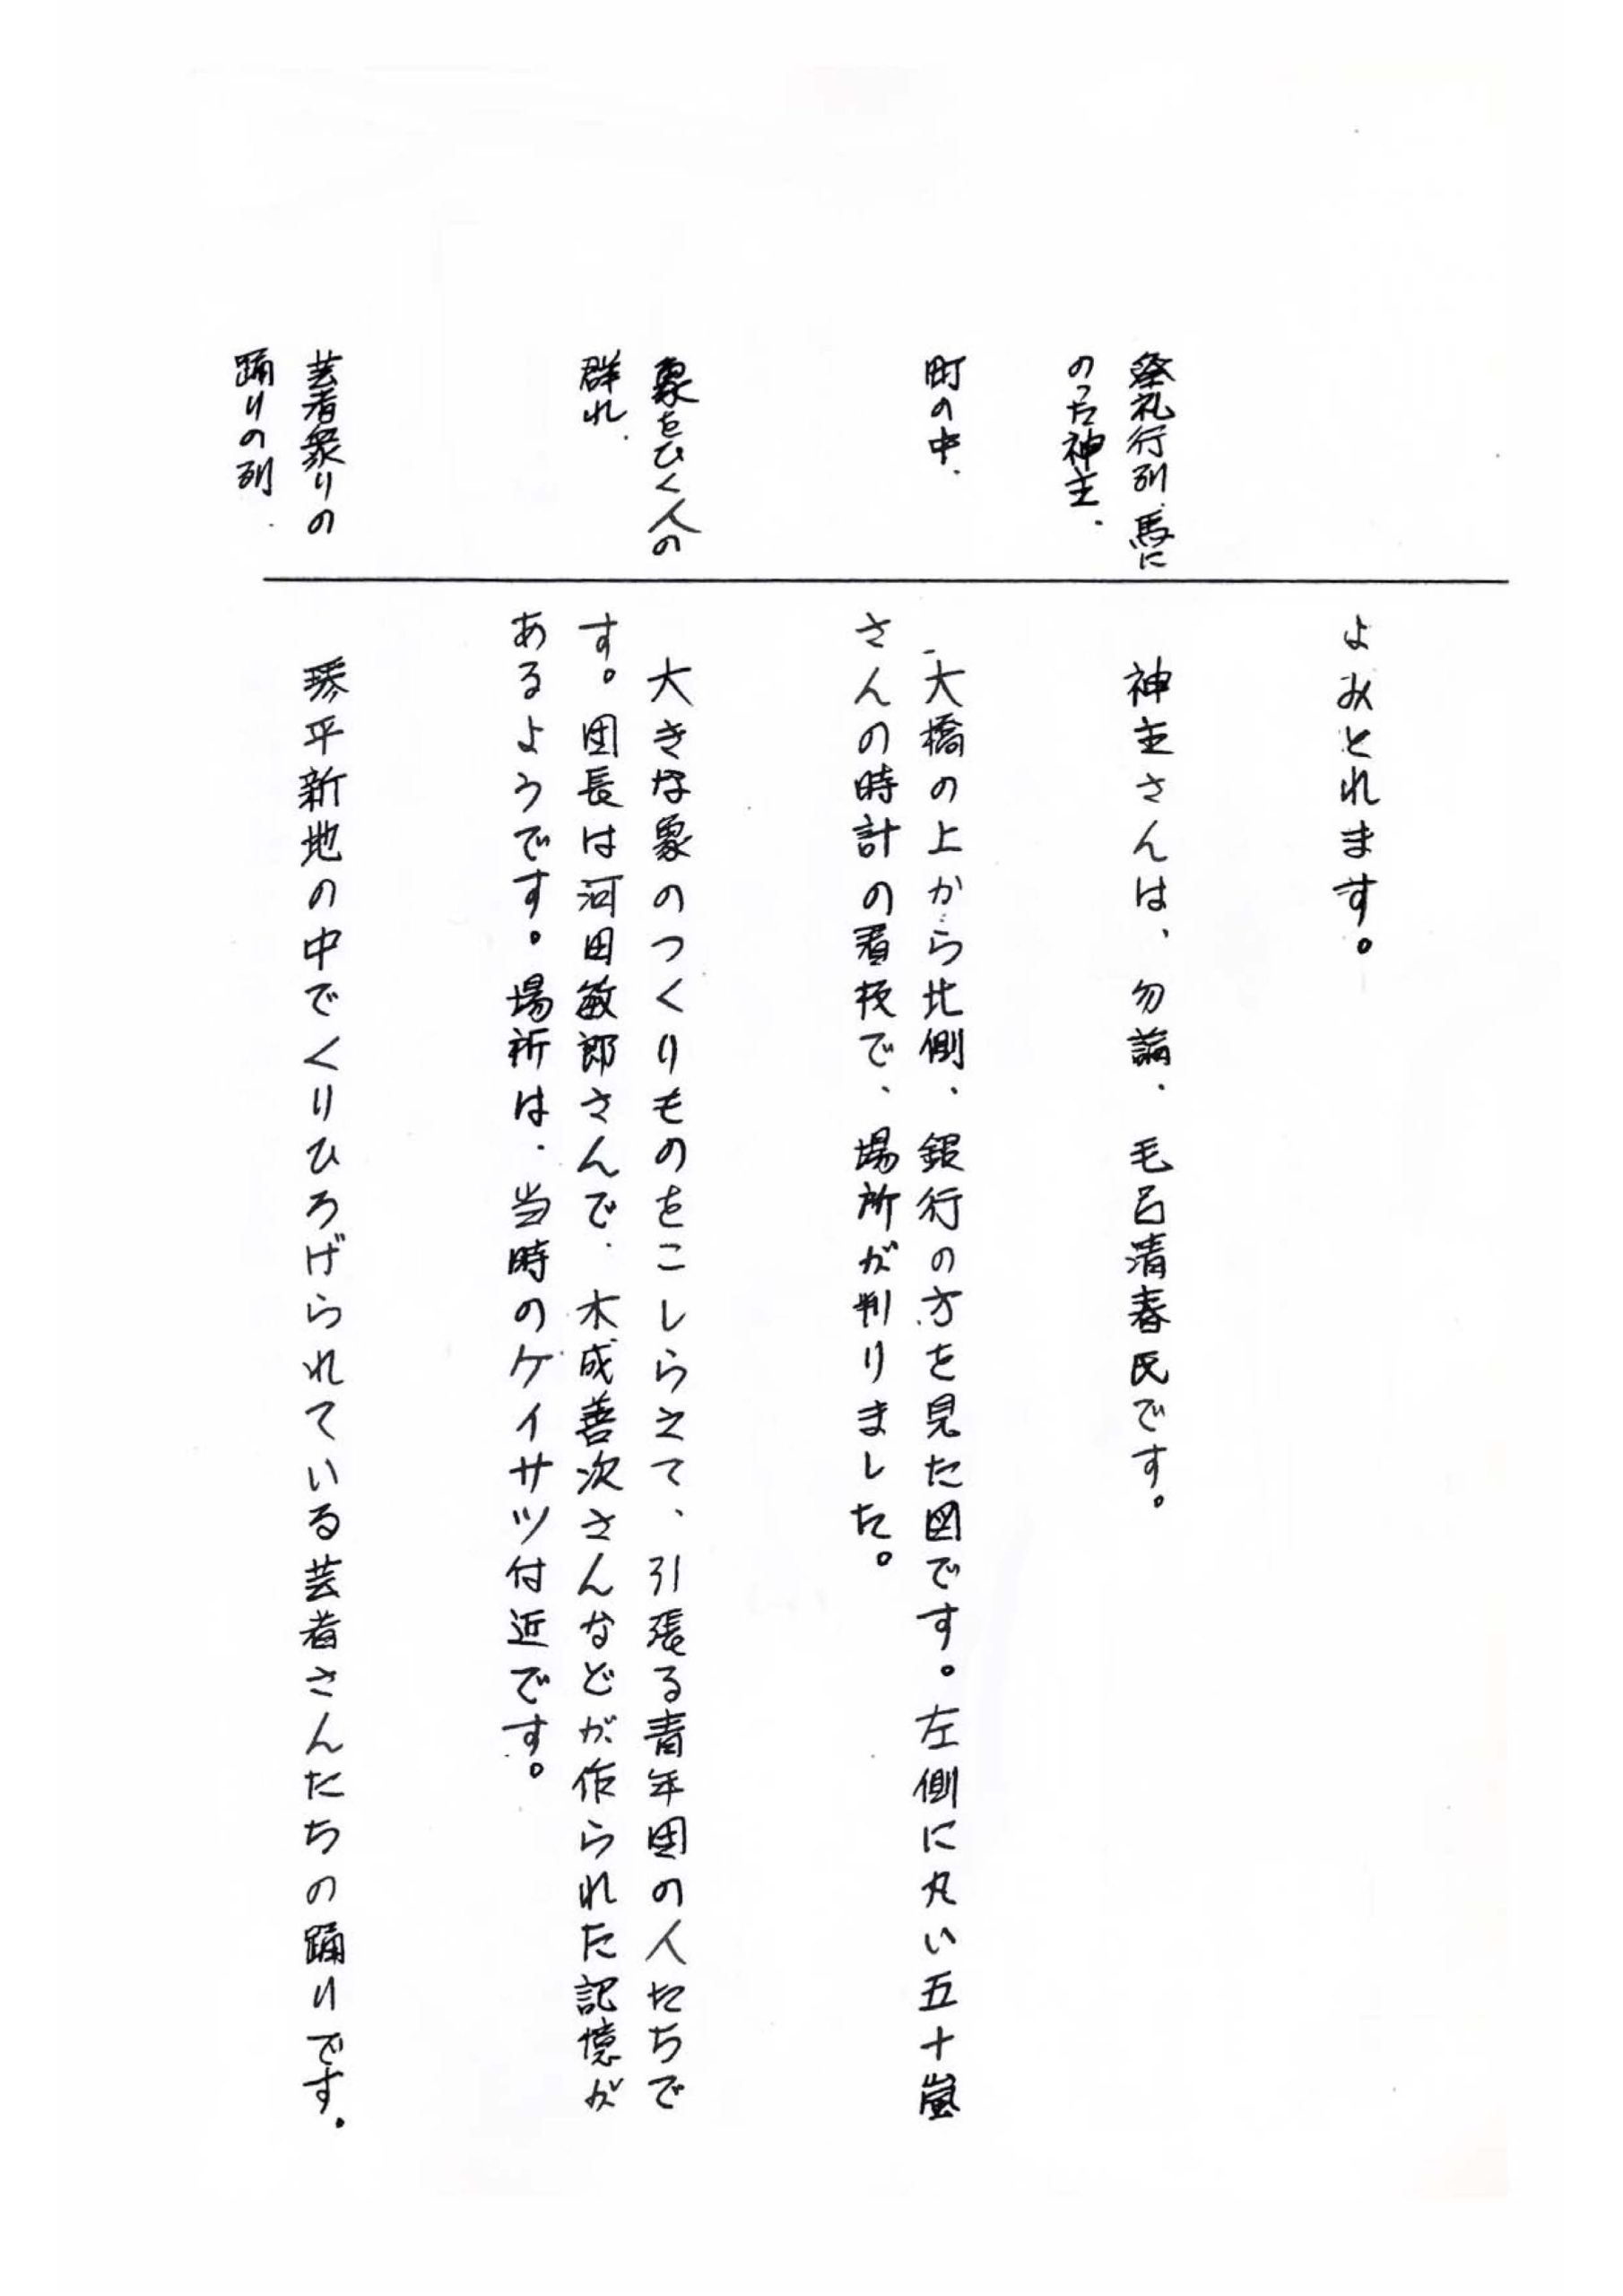 よみとれます。
祭礼行列、馬に
のった神主、
神主さんは、勿論、毛呂清春氏です。
町の中、
大橋の上から北側、銀行の方を見た図です。左側に丸い五十嵐
さんの時計の看板で、場所が判りました。
象をひく人の
群れ、
大きな象のつくりものをこしらえて、引張る青年団の人たちで
す。団長は河田敏郎さんで、木成善次さんなどが作られた記憶が
あるようです。場所は、当時のケイサツ付近です。
芸者衆りの
踊りの列、
琴平新地の中でくりひろげられている芸者さんたちの踊りです。